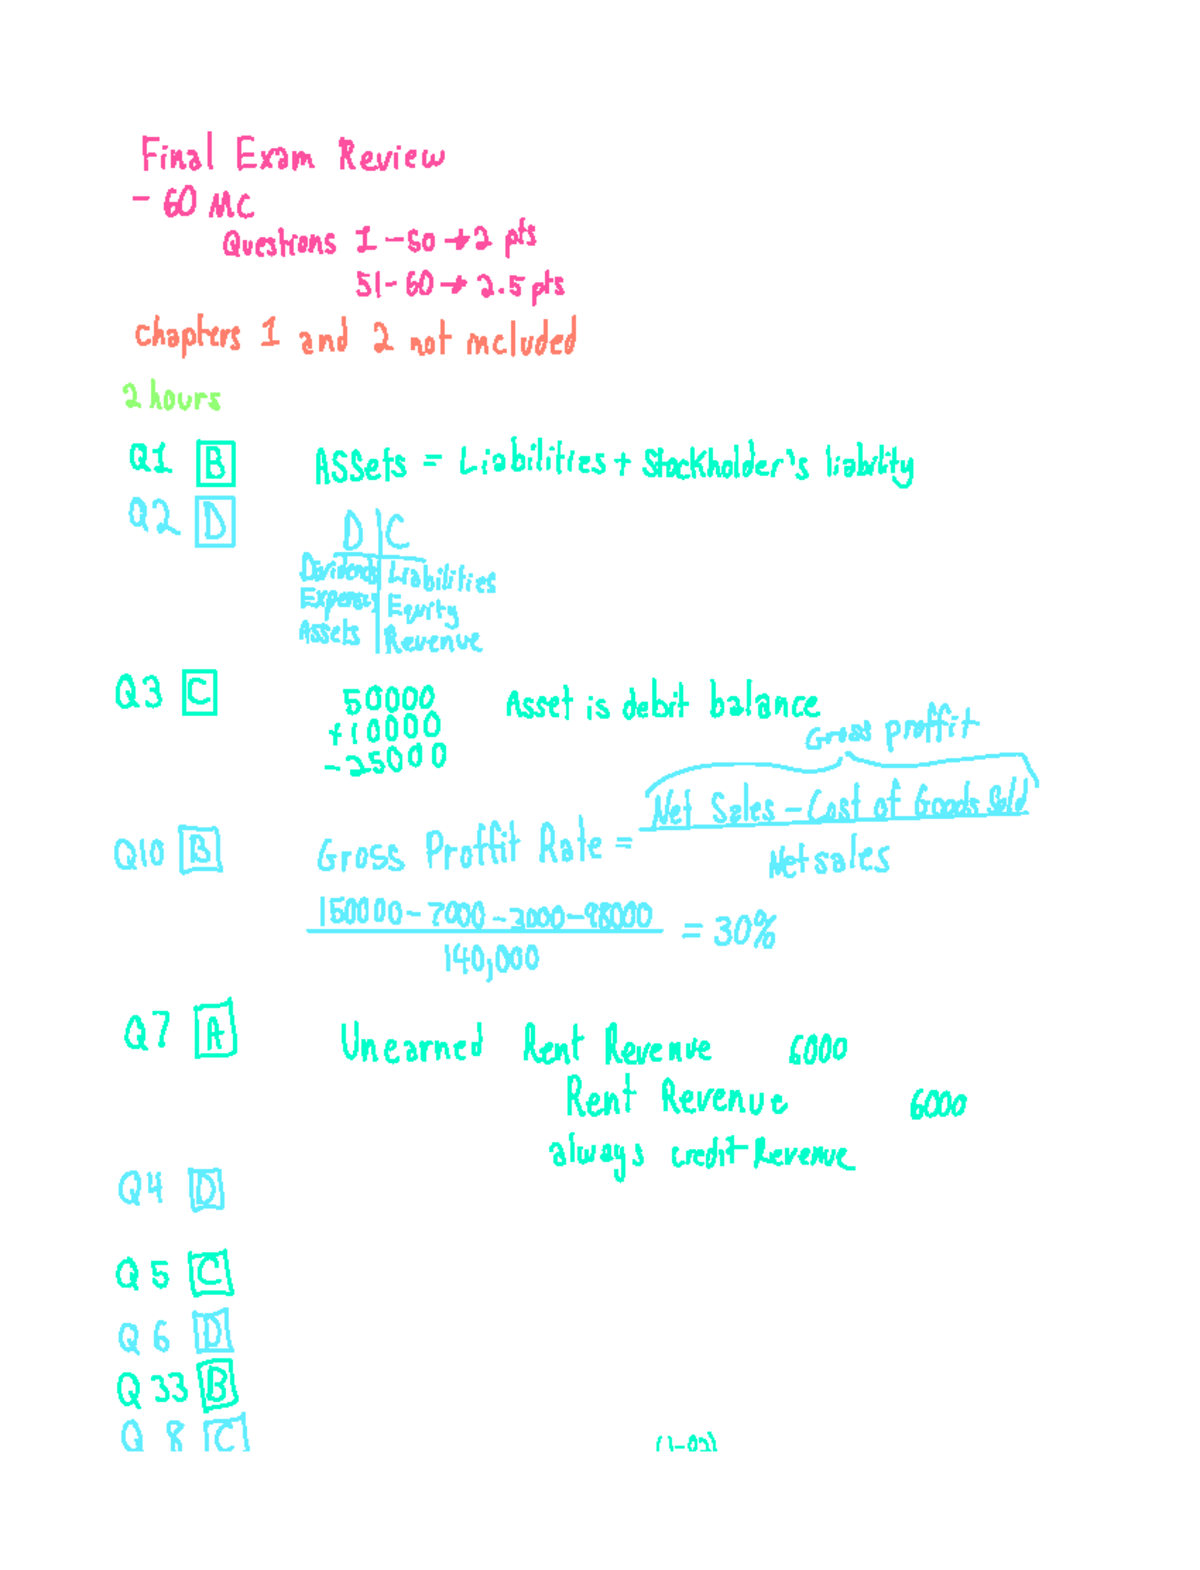 Final Exam Review
- 60 MC
Questions 1-50 → 2 pts
51-60 → 2.5 pts
chapters 1 and 2 not included
2 hours
Q1 B Assets = Liabilities + Stockholder's liability
Q2 D
D | C
Dividends Liabilities
Expenses Equity
Assets Revenue
Q3 C 50000 Asset is debit balance
+10000
-25000
Gross proffit
Net Sales - Cost of Goods Sold
Q10 B Gross Proffit Rate =
Net sales
150000-7000-3000-98000 = 30%
140,000
Q7 A Unearned Rent Revenue 6000
Rent Revenue 6000
always credit Revenue
Q4 D
Q5 C
Q6 D
Q33 B
Q8 C